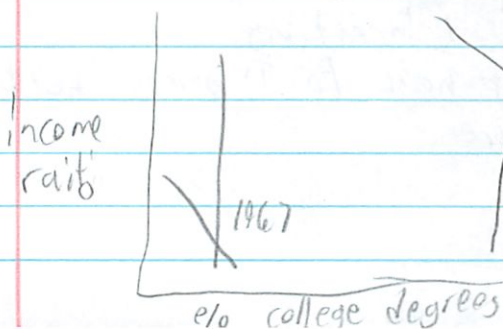 income
raito
1967
e/o college degrees